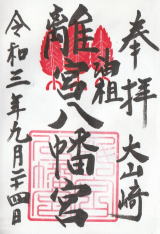 奉拝
大山崎
油祖
離宮八幡宮
令和三年九月二十四日